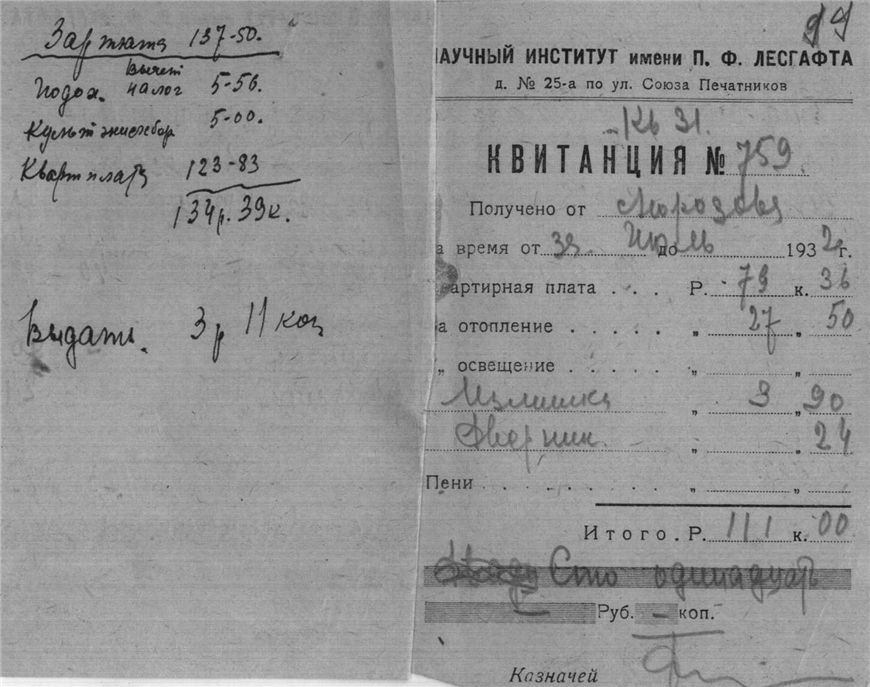 Зарплата 137-50.
вычет
Подох. налог 5-56.
Культжилсбор 5-00.
Квартплата 123-83
134р. 39к.
Выдать. 3 р 11 коп
99
НАУЧНЫЙ ИНСТИТУТ имени П. Ф. ЛЕСГАФТА
д. № 25-а по ул. Союза Печатников
Кв 31.
КВИТАНЦИЯ № 759.
Получено от Морозова
а время от за Июль до 1932г.
вартирная плата . . . Р. 79 к. 36
а отопление . . . . . „ 27 „ 50
„ освещение . . . . . „ „
Излишка „ 3 „ 90
Дворник. „ „ 24
Пени . . . . . . . . . „ „
Итого. Р. 111 к. 00
Сто одинадцать
Руб. – коп.
Казначей